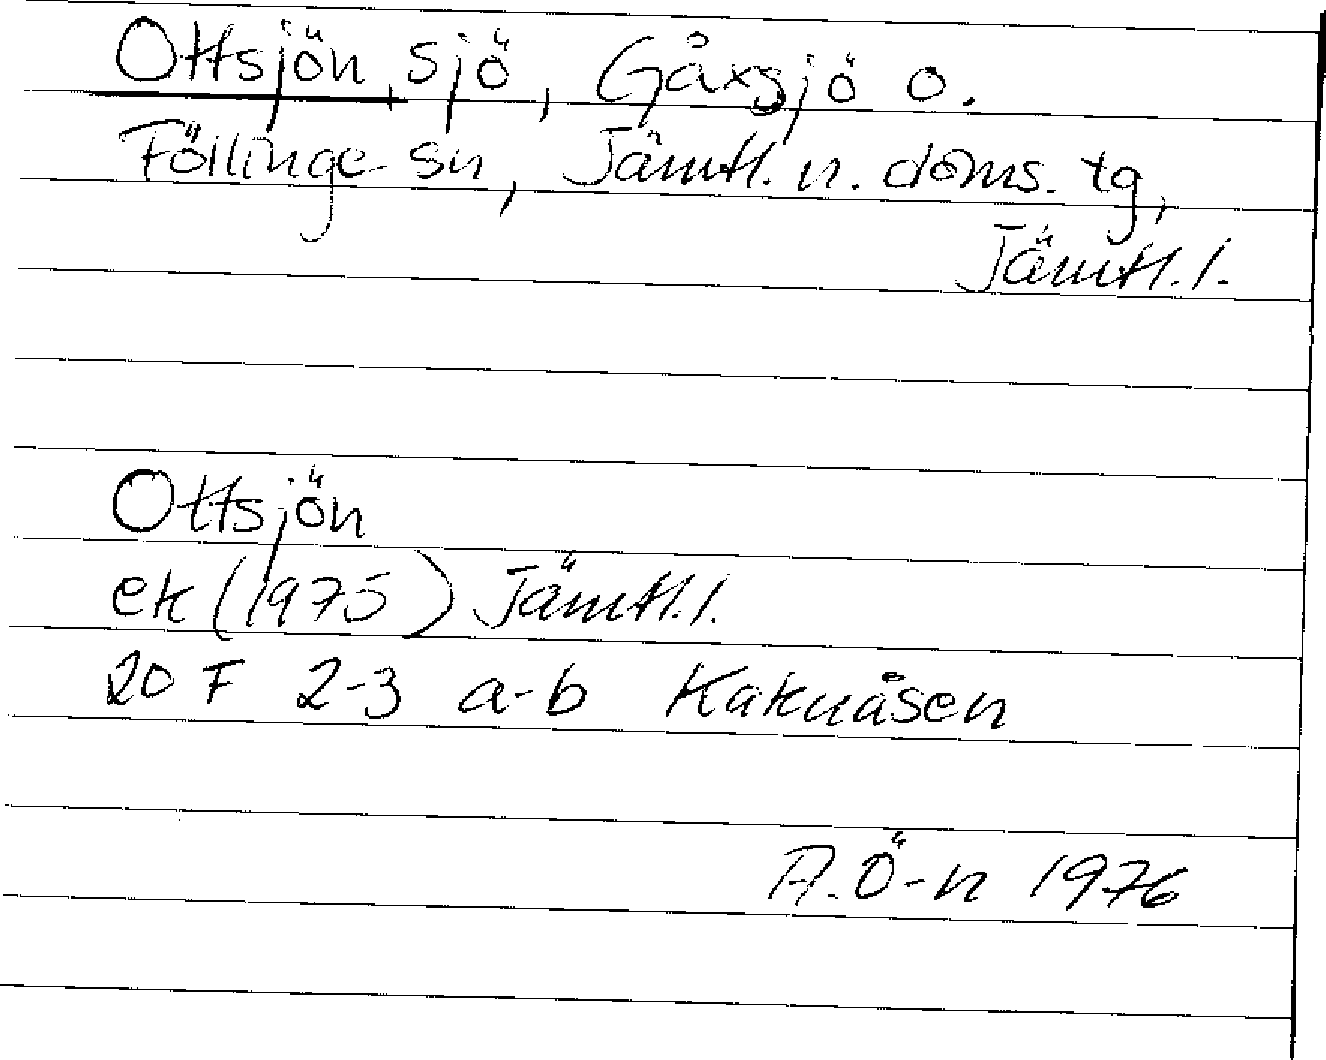 Ottsjön, sjö, Gåxsjö o.
Föllinge sn, Jämtl. n. doms. tg,
Jämtl. l.
Ottsjön
ek (1975) Jämtl. l.
20 F 2-3 a-b Kaknåsen
A. Ö-n 1976